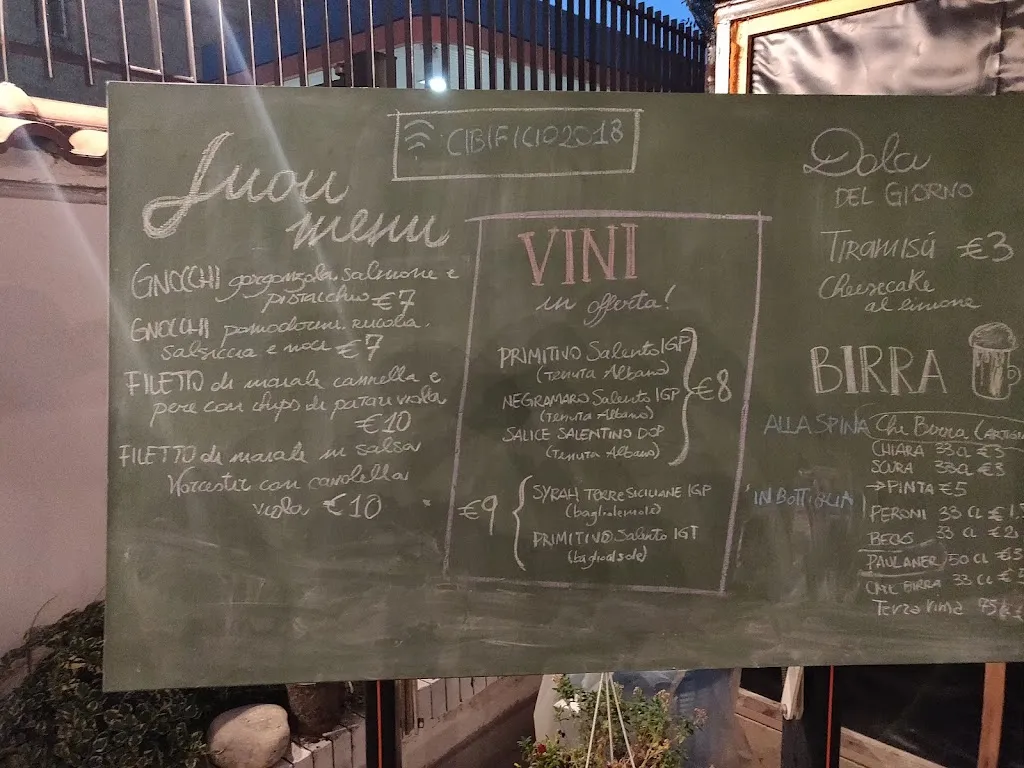 CIBIFICIO2018
Fuori
menu
GNOCCHI gorgonzola, salmone e
pistacchio €7
GNOCCHI pomodorini, rucola,
salsiccia e noci €7
FILETTO di maiale cannella e
pere con chips di patata viola
€10
FILETTO di maiale in salsa
Worcester con
viola €10
VINI
in offerta!
PRIMITIVO Salento IGP
(Tenuta Albano)
NEGRAMARO Salento IGP
(Tenuta Albano)
SALICE SALENTINO DOP
(Tenuta Albano)
€8
€9
SYRAH TERRE SICILIANE IGP
PRIMITIVO Salento IGT
Dolci
DEL GIORNO
TIRAMISÚ €3
Cheesecake
al limone
BIRRA
ALLA SPINA Chi Birra
CHIARA 33 CL €3
SCURA 33 CL €3
→ PINTA €5
IN BOTTIGLIA
PERONI 33 CL €1,
BECKS 33 CL €2
PAULANER 50 CL €3
CHI BIRRA 33 CL €
Terza rima 75